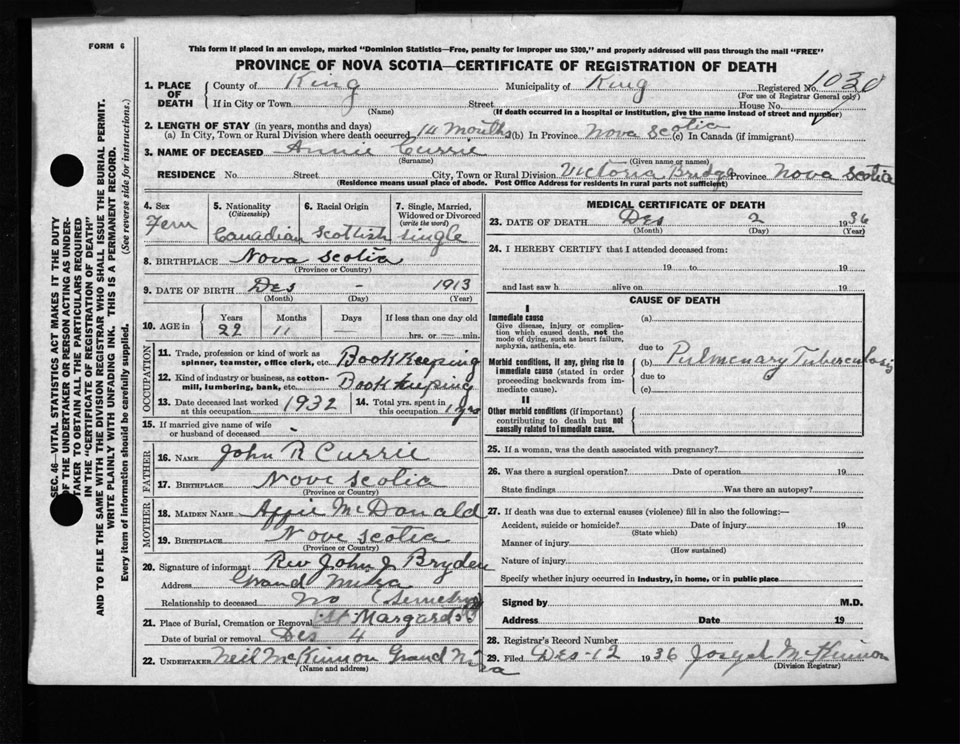 FORM 6
This form if placed in an envelope, marked "Dominion Statistics—Free, penalty for improper use $300," and properly addressed will pass through the mail "FREE"
PROVINCE OF NOVA SCOTIA—CERTIFICATE OF REGISTRATION OF DEATH
SEC. 46—VITAL STATISTICS ACT MAKES IT THE DUTY
OF THE UNDERTAKER OR PERSON ACTING AS UNDER-
TAKER TO OBTAIN ALL THE PARTICULARS REQUIRED
IN THE "CERTIFICATE OF REGISTRATION OF DEATH"
AND TO FILE THE SAME WITH THE DIVISION REGISTRAR WHO SHALL ISSUE THE BURIAL PERMIT.
WRITE PLAINLY WITH UNFADING INK. THIS IS A PERMANENT RECORD.
Every item of information should be carefully supplied. (See reverse side for instructions.)
1. PLACE OF DEATH County of King Municipality of King Registered No. 1030
(For use of Registrar General only)
If in City or Town Street House No.
(Name) (If death occurred in a hospital or institution, give the name instead of street and number)
2. LENGTH OF STAY (in years, months and days)
(a) In City, Town or Rural Division where death occurred 14 Months (b) In Province Nova Scotia (c) In Canada (if immigrant)
3. NAME OF DECEASED Annie Currie
(Surname) (Given name or names)
RESIDENCE No. Street City, Town or Rural Division Victoria Bridge Province Nova Scotia
(Residence means usual place of abode. Post Office Address for residents in rural parts not sufficient)
4. Sex 5. Nationality (Citizenship) 6. Racial Origin 7. Single, Married, Widowed or Divorced (write the word)
Fem Canadian Scottish Single
8. BIRTHPLACE Nova Scotia
(Province or Country)
9. DATE OF BIRTH Des - 1913
(Month) (Day) (Year)
10. AGE in Years Months Days If less than one day old
22 11 — hrs. or min.
OCCUPATION
11. Trade, profession or kind of work as spinner, teamster, office clerk, etc. Book Keeping
12. Kind of industry or business, as cotton-mill, lumbering, bank, etc. Book Keeping
13. Date deceased last worked at this occupation 1932 14. Total yrs. spent in this occupation 1 yrs
15. If married give name of wife or husband of deceased -
FATHER
16. NAME John R Currie
17. BIRTHPLACE Nova Scotia
(Province or Country)
MOTHER
18. MAIDEN NAME Affie McDonald
19. BIRTHPLACE Nove Scotia
(Province or Country)
20. Signature of informant Rev John J Bryden
Address Grand Mira
Relationship to deceased No
21. Place of Burial, Cremation or Removal St Margards
Date of burial or removal Des 4
22. UNDERTAKER Neil McKinnon Grand Mira
(Name and address)
MEDICAL CERTIFICATE OF DEATH
23. DATE OF DEATH Des 2 1936
(Month) (Day) (Year)
24. I HEREBY CERTIFY that I attended deceased from:
19 to 19
and last saw h alive on 19
CAUSE OF DEATH
I
Immediate cause (a)
Give disease, injury or complication which caused death, not the mode of dying, such as heart failure, asphyxia, asthenia, etc.
due to
Morbid conditions, if any, giving rise to immediate cause (stated in order proceeding backwards from immediate cause). (b) Pulmenary Tuberculosis
due to
(c)
II
Other morbid conditions (if important) contributing to death but not causally related to immediate cause.
25. If a woman, was the death associated with pregnancy?
26. Was there a surgical operation? Date of operation 19
State findings Was there an autopsy?
27. If death was due to external causes (violence) fill in also the following:—
Accident, suicide or homicide? Date of injury 19
(State which)
Manner of injury
(How sustained)
Nature of injury
Specify whether injury occurred in industry, in home, or in public place
Signed by M.D.
Address Date 19
28. Registrar's Record Number
29. Filed Des-12 1936 Joseph McKinnon
(Division Registrar)